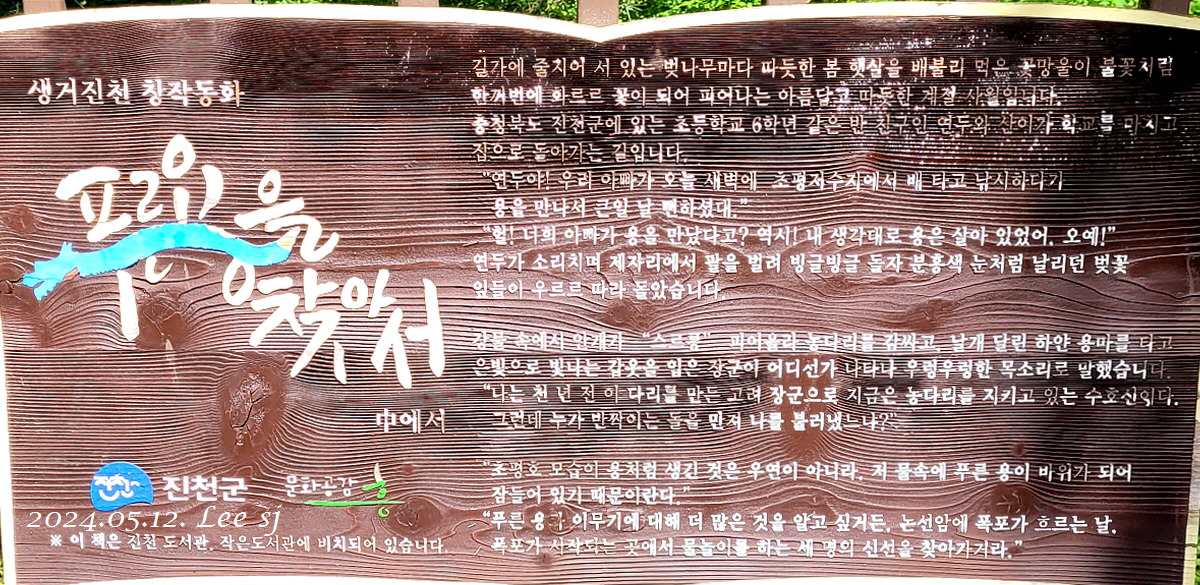 생거진천 창작동화
푸른 용을
찾아서
中에서
진천~
진천군
문화공감
2024.05.12. Lee sj
※ 이 책은 진천 도서관, 작은도서관에 비치되어 있습니다.
길가에 줄지어 서 있는 벚나무마다 따듯한 봄 햇살을 배불리 먹은 꽃망울이 불꽃처럼
한꺼번에 화르르 꽃이 되어 피어나는 아름답고 따듯한 계절 사월입니다.
충청북도 진천군에 있는 초등학교 6학년 같은 반 친구인 연두와 산이가 학교를 마치고
집으로 돌아가는 길입니다.
“연두야! 우리 아빠가 오늘 새벽에 초평저수지에서 배 타고 낚시하다가
용을 만나서 큰일 날 뻔하셨대.”
“헐! 너희 아빠가 용을 만났다고? 역시! 내 생각대로 용은 살아 있었어. 오예!”
연두가 소리치며 제자리에서 팔을 벌려 빙글빙글 돌자 분홍색 눈처럼 날리던 벚꽃
잎들이 우르르 따라 돌았습니다.
강물 속에서 안개가 “스르릉” 피어올라 농다리를 감싸고, 날개 달린 하얀 용마를 타고
은빛으로 빛나는 갑옷을 입은 장군이 어디선가 나타나 우렁우렁한 목소리로 말했습니다.
“나는 천 년 전 이 다리를 만든 고려 장군으로 지금은 농다리를 지키고 있는 수호신이다.
그런데 누가 반짝이는 돌을 만져 나를 불러냈느냐?”
“초평호 모습이 용처럼 생긴 것은 우연이 아니라. 저 물속에 푸른 용이 바위가 되어
잠들어 있기 때문이란다.”
“푸른 용과 이무기에 대해 더 많은 것을 알고 싶거든, 논선암에 폭포가 흐르는 날.
폭포가 시작되는 곳에서 물놀이를 하는 세 명의 신선을 찾아가거라.”